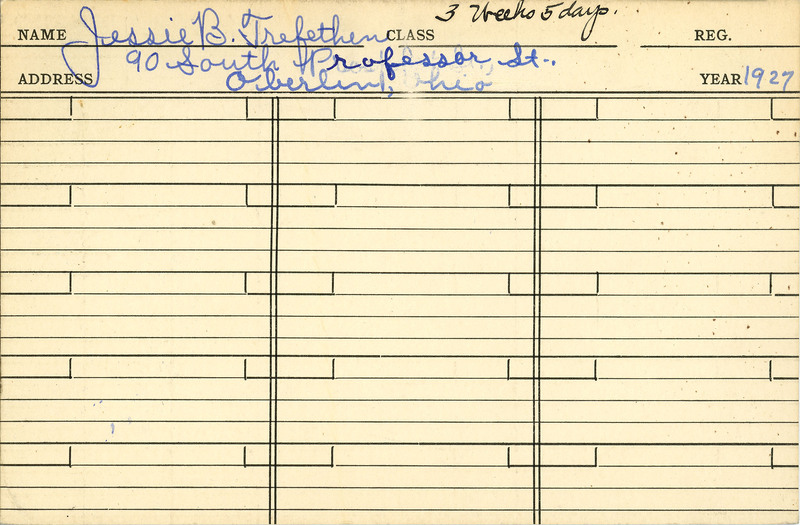 NAME Jessie B. Trefethen CLASS 3 Weeks 5 days. REG.
90 South Professor St..
ADDRESS Oberlin, Ohio YEAR 1927